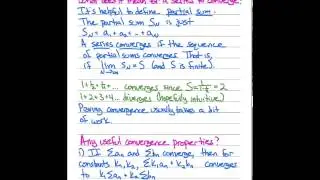 What does it mean for a series to converge?
It's helpful to define partial sum.
The partial sum Sₙ is just
Sₙ = a₁ + a₂ + ... + aₙ
A series converges if the sequence
of partial sums converges. That is,
if lim Sₙ = S (and S is finite)
N→∞
1 + ½ + ¼ + ... converges since S = = 2
1+2+3+4... diverges (hopefully intuitive)
Proving convergence usually takes a bit
of work.
Any useful convergence properties?
1) If Σaₙ and Σbₙ converge, then for
constants k₁, k₂, Σk₁aₙ + k₂bₙ converges
to k₁Σaₙ + k₂Σbₙ